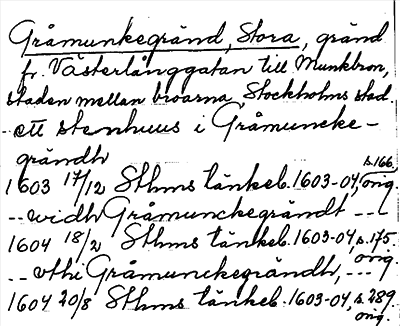 Gråmunkegränd, Stora, gränd
fr. Västerlånggatan till Munkbron,
staden mellan broarna, Stockholms stad.
- ett stenhuus i Gråmuncke-
grändh
1603 17/12 Sthms tänkeb. 1603-04, s.166 orig.
-- widh Gråmunckegrändt ---
1604 18/2 Sthms tänkeb. 1603-04, s.175 orig.
-- vthi Gråmunckegrändh, ---
1604 20/8 Sthms tänkeb. 1603-04, s.289 orig.